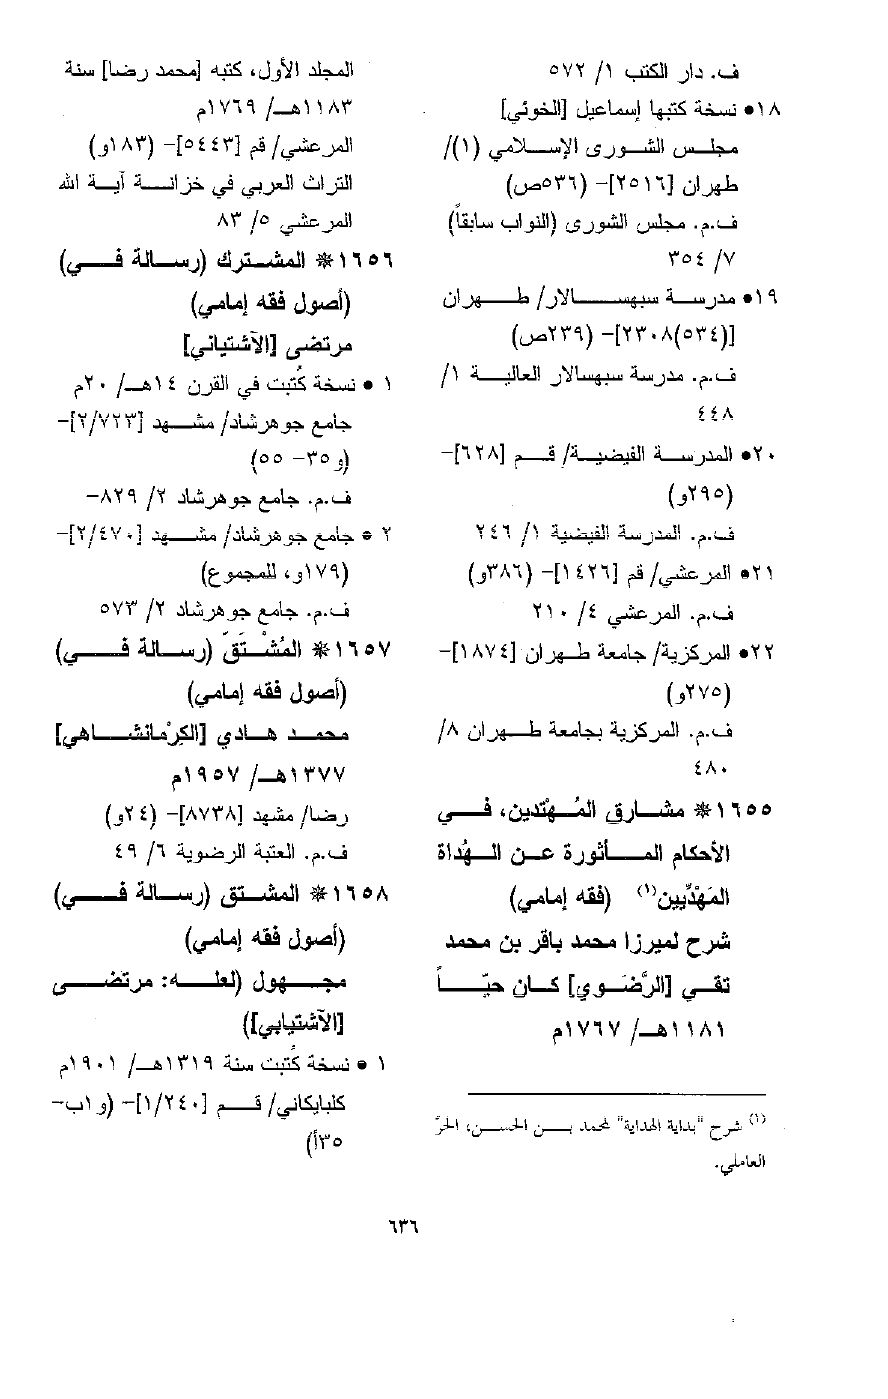 ف. دار الكتب ١/ ٥٧٢
١٨● نسخة كتبها إسماعيل [الخوئي]
مجلس الشورى الإسلامي (١)/
طهران [٢٥١٦]- (٥٣٦ص)
ف.م. مجلس الشورى (النواب سابقاً)
٧/ ٣٥٤
١٩● مدرسة سبهسالار/ طهران
[(٥٣٤)٢٣٠٨]- (٢٣٩ص)
ف.م. مدرسة سبهسالار العالية ١/
٤٤٨
٢٠● المدرسة الفيضية/ قم [٦٢٨]-
(٢٩٥و)
ف.م. المدرسة الفيضية ١/ ٢٤٦
٢١● المرعشي/ قم [١٤٢٦]- (٣٨٦و)
ف.م. المرعشي ٤/ ٢١٠
٢٢● المركزية/ جامعة طهران [١٨٧٤]-
(٢٧٥و)
ف.م. المركزية بجامعة طهران ٨/
٤٨٠
١٦٥٥ * مشارق المُهْتدين، في
الأحكام المأثورة عن الهُداة
المَهْدِّيين(١) (فقه إمامي)
شرح لميرزا محمد باقر بن محمد
تقي [الرَّضَوي] كان حيّاً
١١٨١هـ/ ١٧٦٧م
(١) شرح "بداية الهداية" لمحمد بن الحسن، الحرّ
العاملي.
المجلد الأول، كتبه [محمد رضا] سنة
١١٨٣هـ/ ١٧٦٩م
المرعشي/ قم [٥٤٤٣]- (١٨٣و)
التراث العربي في خزانة آية الله
المرعشي ٥/ ٨٣
١٦٥٦ * المشترك (رسالة في)
(أصول فقه إمامي)
مرتضى [الآشتياني]
١ ● نسخة كُتبت في القرن ١٤هـ/ ٢٠م
جامع جوهرشاد/ مشهد [٢/٧٢٣]-
(و٣٥- ٥٥)
ف.م. جامع جوهرشاد ٢/ ٨٢٩-
٢ ● جامع جوهرشاد/ مشهد [٢/٤٧٠]-
(١٧٩و، للمجموع)
ف.م. جامع جوهرشاد ٢/ ٥٧٣
١٦٥٧ * المُشْتَقّ (رسالة في)
(أصول فقه إمامي)
محمد هادي [الكِرْمانشاهي]
١٣٧٧هـ/ ١٩٥٧م
رضا/ مشهد [٨٧٣٨]- (٢٤و)
ف.م. العتبة الرضوية ٦/ ٤٩
١٦٥٨ * المشتق (رسالة في)
(أصول فقه إمامي)
مجهول (لعله: مرتضى
[الآشتيابي])
١ ● نسخة كُتبت سنة ١٣١٩هـ/ ١٩٠١م
كلبايكاني/ قم [١/٢٤٠]- (و١ب-
٣٥أ)
٦٣٦